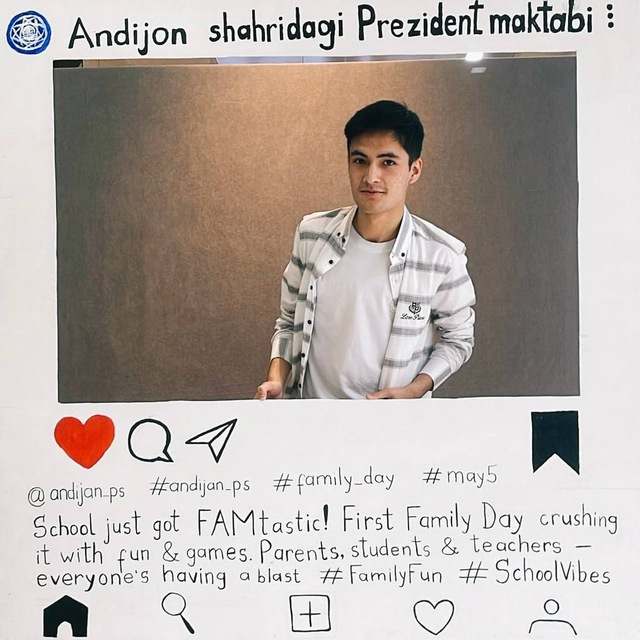 Andijon shahridagi Prezident maktabi
@andijan_ps #andijan_ps #family_day #may5
School just got FAMtastic! First Family Day crushing
it with fun & games. Parents, students & teachers –
everyone's having a blast #FamilyFun # SchoolVibes